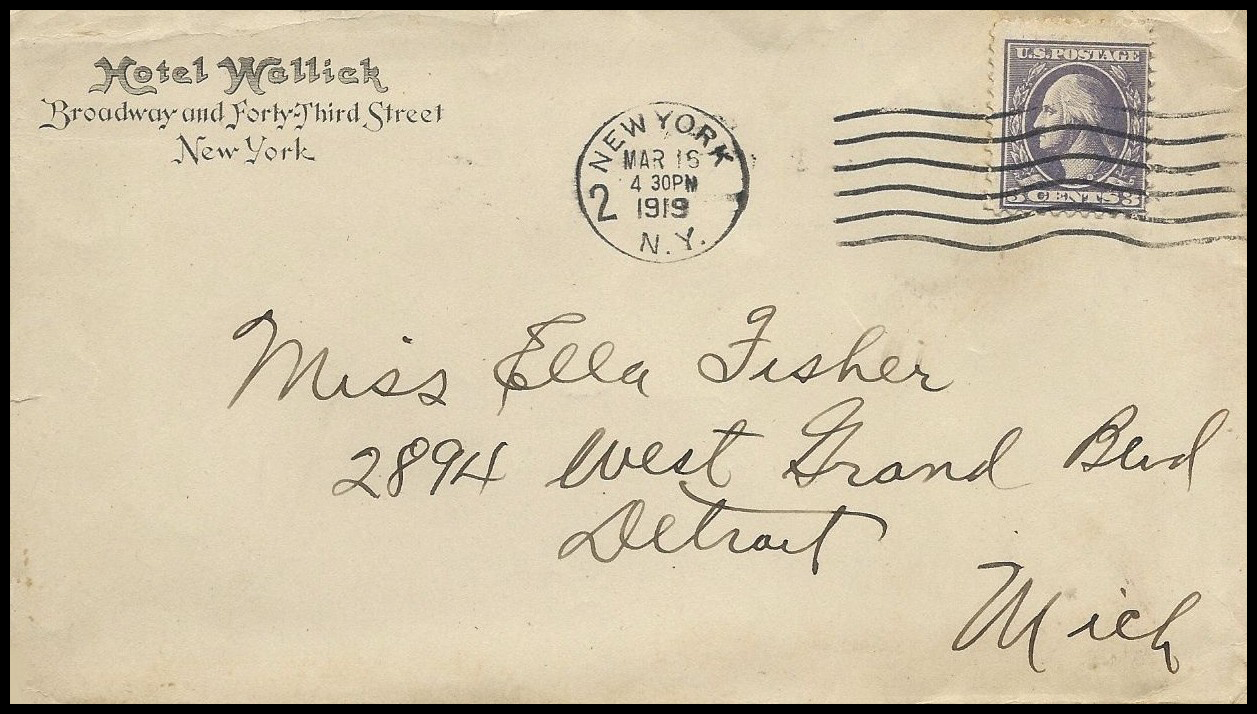 Hotel Wallick
Broadway and Forty-Third Street
New York
NEW YORK
MAR 16
4 30PM
2 1919
N.Y.
U.S. POSTAGE
3 CENTS 3
Miss Ella Fisher
2894 West Grand Blvd
Detroit
Mich